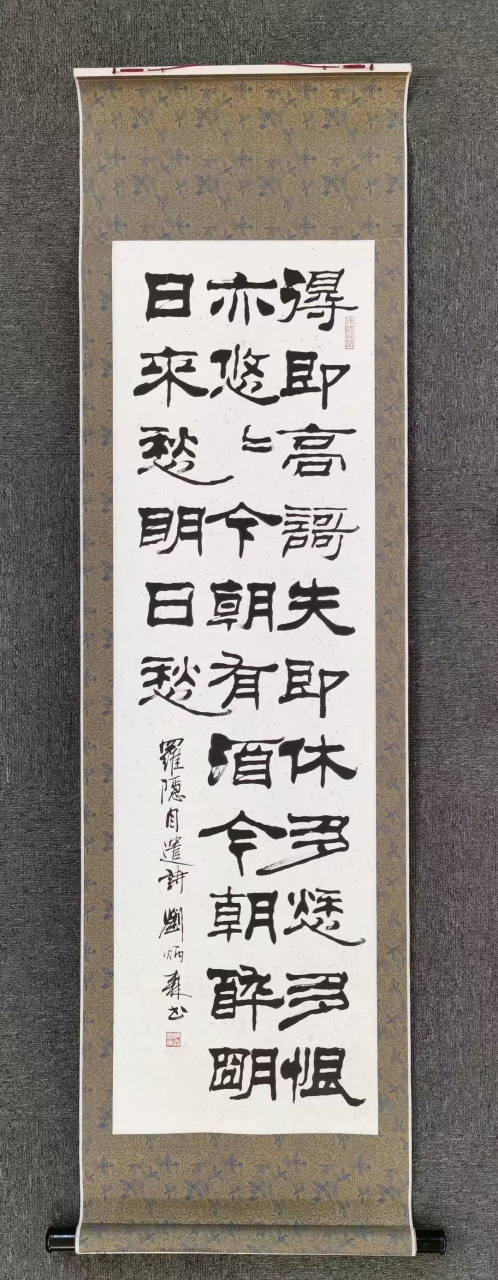 得即高謌失即休多愁多恨
亦悠〻今朝有酒今朝醉朙
日來愁明日愁
羅隱自遣詩 劉炳森書